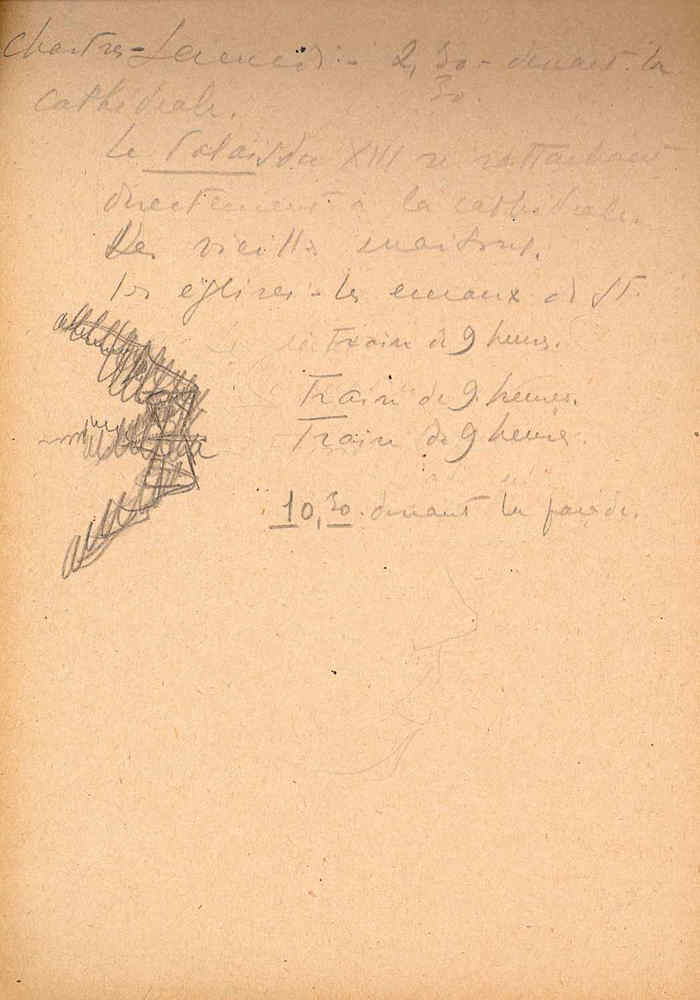 Chartres - 2,30 - devant la
30
cathédrale.
Le Palais du XIII se rattachant
directement à la cathédrale.
Les vieilles maisons.
les églises - les emaux de St.
Train de 9 heures.
Train de 9 heures.
Train de 9 heures.
10,30. devant la façade.